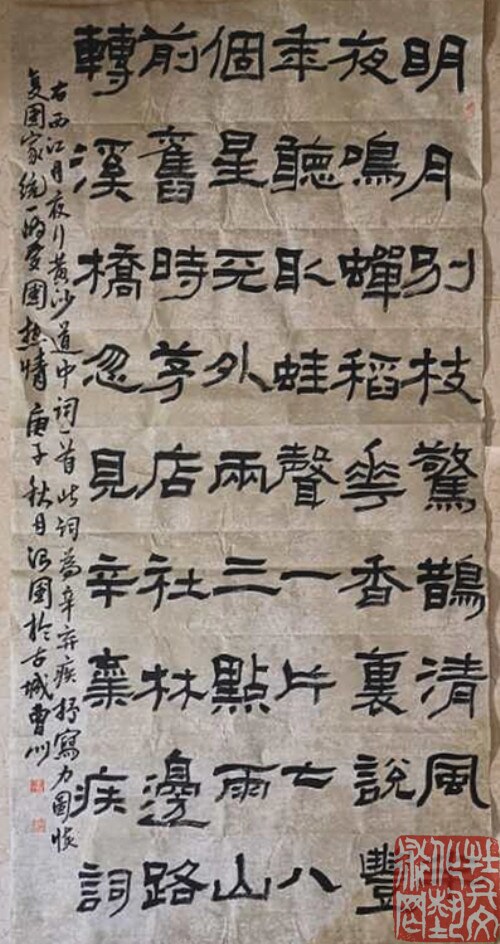 明月别枝驚鵲清風
夜鳴蟬稻花香裏說豐
年聽取蛙聲一片七八
個星天外兩三點雨山
前舊時茅店社林邊路
轉溪橋忽見辛棄疾詞
右西江月夜行黄沙道中詞一首此詞為辛弃疾抒寫力圖恢
复國家統一的愛國熱情 庚子秋月國於古城曹州